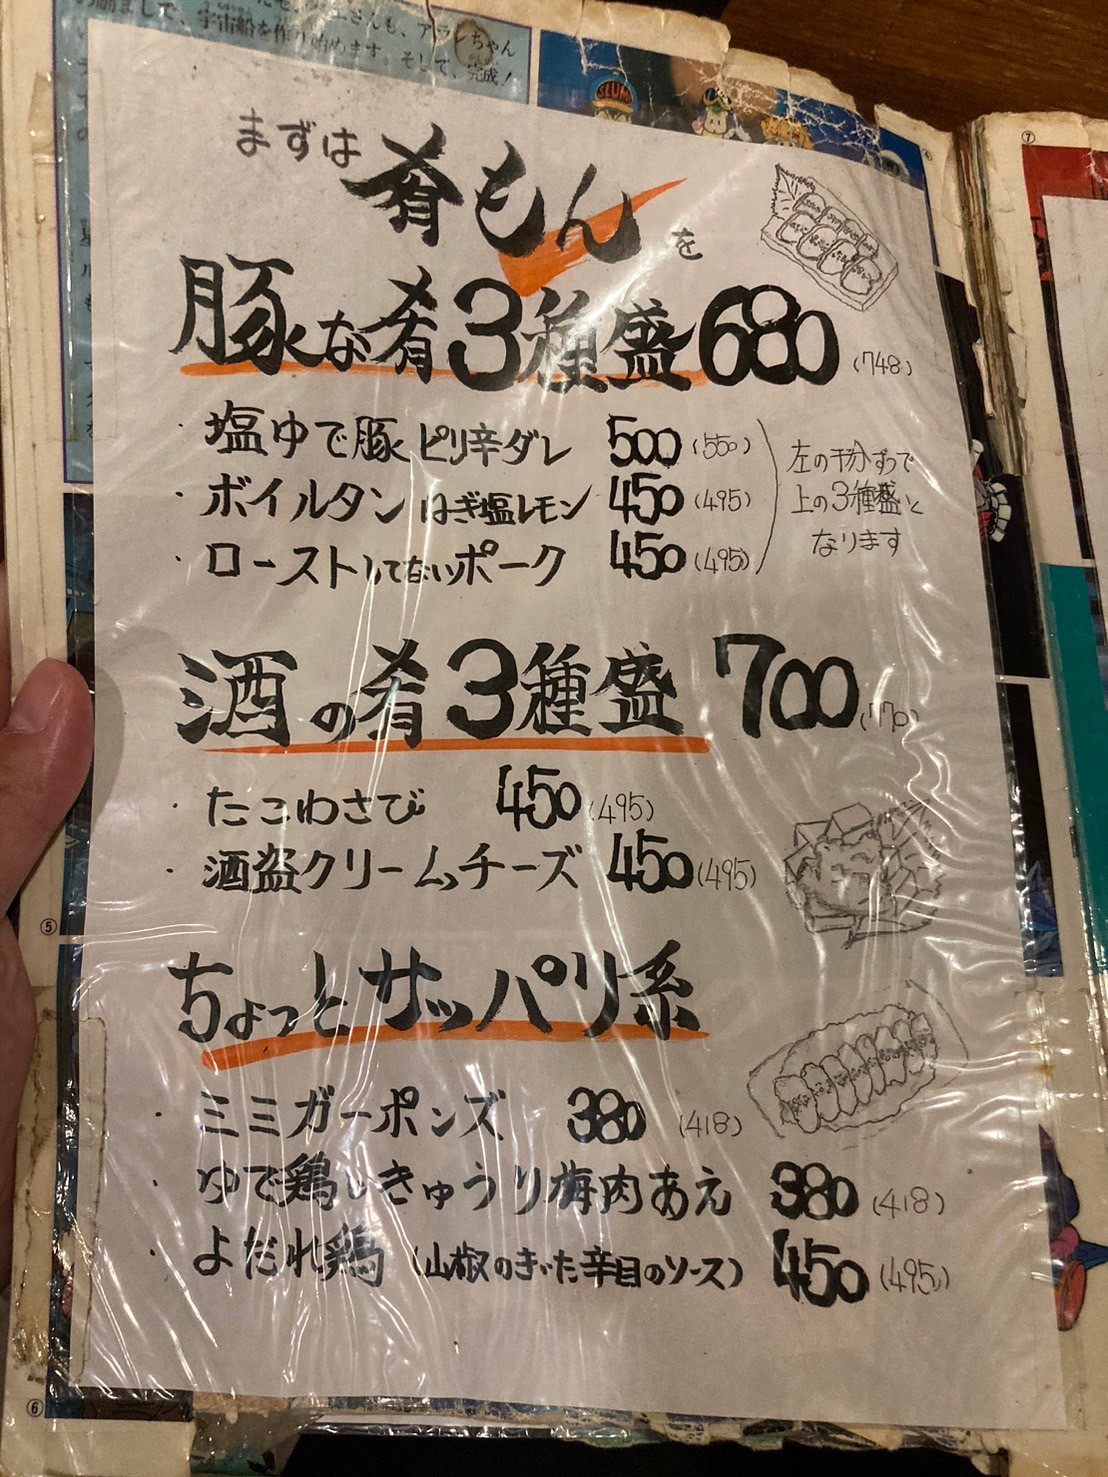 宇宙船を作り始めます。そして、完成!
SLUMP
まずは肴もんを
豚な肴3種盛680(748)
・塩ゆで豚ピリ辛ダレ 500(550)
・ボイルタンねぎ塩レモン 450(495)
・ローストしてないポーク 450(495)
左の干分ずつで
上の3種盛と
なります
酒の肴3種盛 700(770)
・たこわさび 450(495)
・酒盗クリームチーズ 450(495)
ちょっとサッパリ系
・ミミガーポンズ 380(418)
・ゆで鶏ときゅうり梅肉あえ 380(418)
・よだれ鶏(山椒のきいた辛目のソース) 450(495)
⑤
⑥
⑦